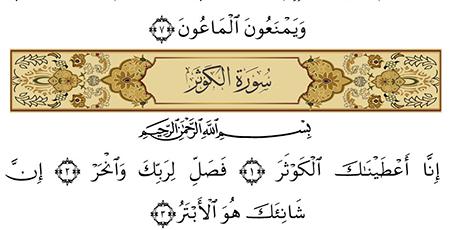 وَيَمْنَعُونَ ٱلْمَاعُونَ ﴿٧﴾
سُورَةُ الكَوْثَرِ
بِسْمِ ٱللَّهِ ٱلرَّحْمَٰنِ ٱلرَّحِيمِ
إِنَّا أَعْطَيْنَٰكَ ٱلْكَوْثَرَ ﴿١﴾ فَصَلِّ لِرَبِّكَ وَٱنْحَرْ ﴿٢﴾ إِنَّ
شَانِئَكَ هُوَ ٱلْأَبْتَرُ ﴿٣﴾